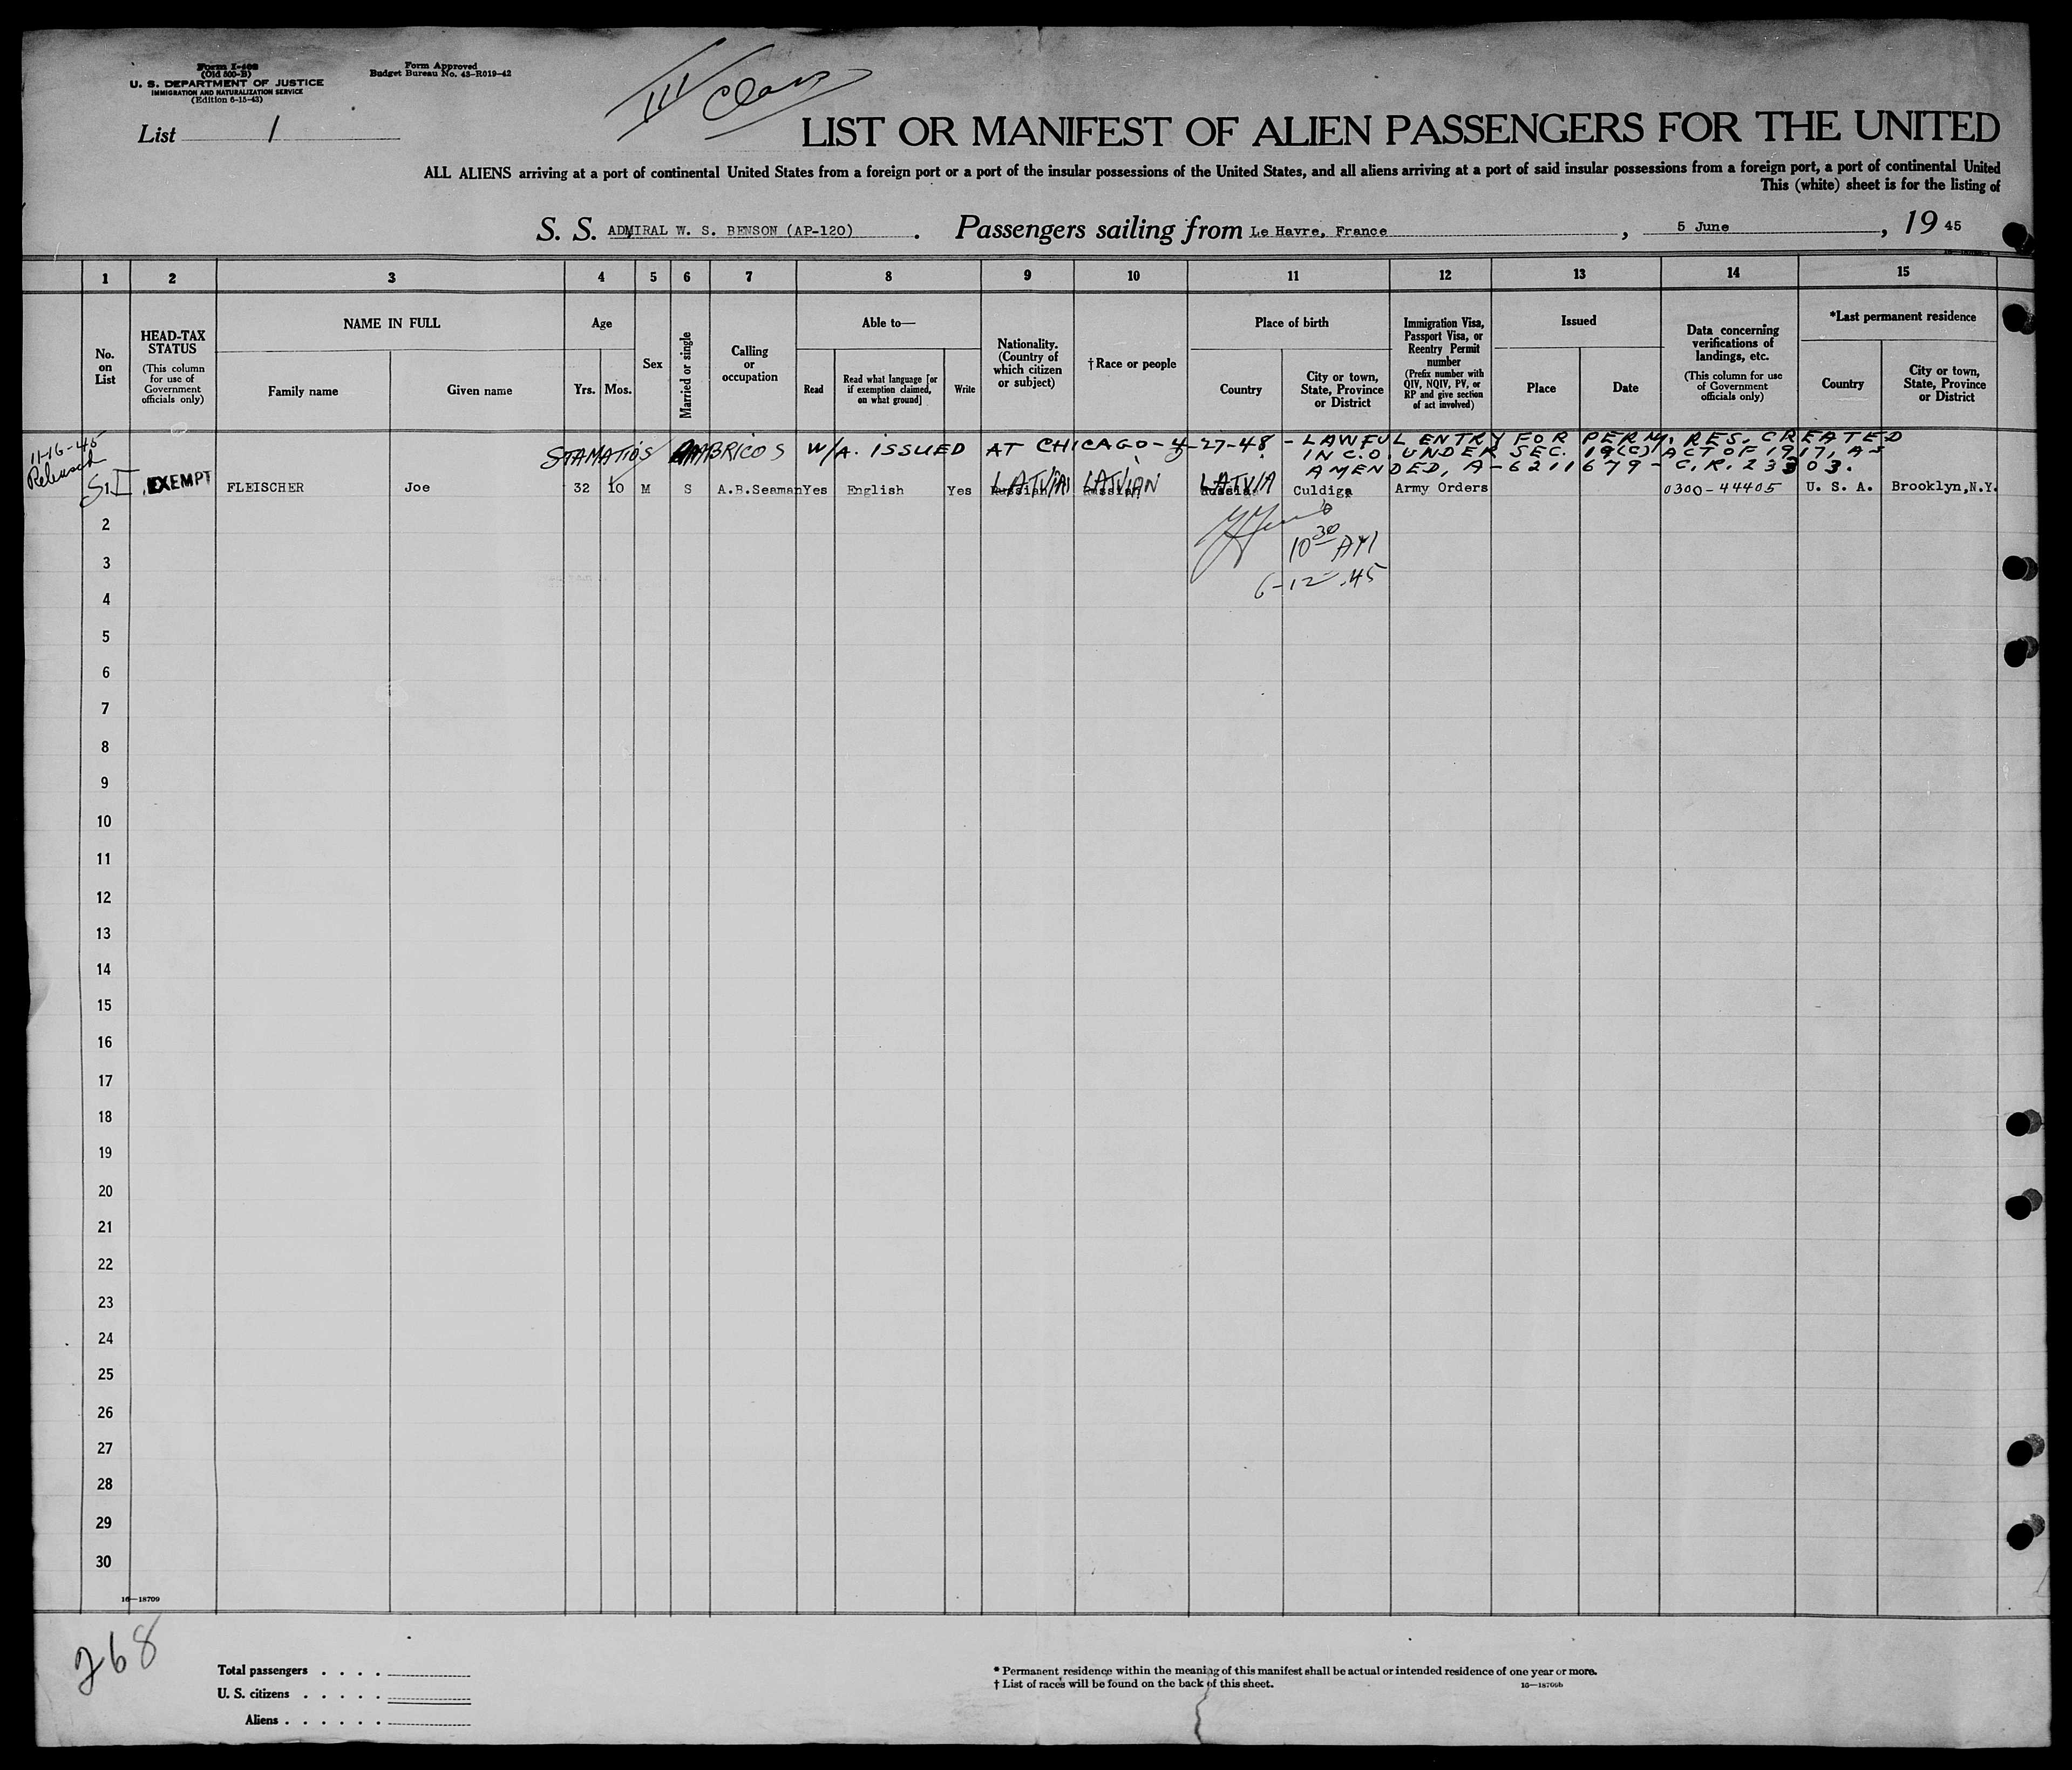 Form I-408
(Old 500-B)
U. S. DEPARTMENT OF JUSTICE
IMMIGRATION AND NATURALIZATION SERVICE
(Edition 6-15-43)
Form Approved
Budget Bureau No. 43-R019-42
III Class
List 1
LIST OR MANIFEST OF ALIEN PASSENGERS FOR THE UNITED
ALL ALIENS arriving at a port of continental United States from a foreign port or a port of the insular possessions of the United States, and all aliens arriving at a port of said insular possessions from a foreign port, a port of continental United
This (white) sheet is for the listing of
S. S. ADMIRAL W. S. BENSON (AP-120). Passengers sailing from Le Havre, France, 5 June, 19 45
1 2 3 4 5 6 7 8 9 10 11 12 13 14 15
No. on List
HEAD-TAX STATUS
(This column for use of Government officials only)
NAME IN FULL
Family name
Given name
Age
Yrs. Mos.
Sex
Married or single
Calling or occupation
Able to—
Read
Read what language [or if exemption claimed, on what ground]
Write
Nationality. (Country of which citizen or subject)
†Race or people
Place of birth
Country
City or town, State, Province or District
Immigration Visa, Passport Visa, or Reentry Permit number
(Prefix number with QIV, NQIV, PV, or RP and give section of act involved)
Issued
Place
Date
Data concerning verifications of landings, etc.
(This column for use of Government officials only)
*Last permanent residence
Country
City or town, State, Province or District
11-16-45
Released
STAMATIOS AMBRICOS W/A. ISSUED AT CHICAGO-4-27-48 - LAWFUL ENTRY FOR PERM. RES. CREATED
IN C.O. UNDER SEC. 19(C) ACT OF 1917, AS
AMENDED, A-6211679- C.R. 23303.
SI 1 EXEMPT FLEISCHER Joe 32 10 M S A.B.Seaman Yes English Yes Russian LATVIAN Russian LATVIAN Russia LATVIA Culdiga Army Orders 0300-44405 U. S. A. Brooklyn,N.Y.
10 30 AM
6-12-45
2
3
4
5
6
7
8
9
10
11
12
13
14
15
16
17
18
19
20
21
22
23
24
25
26
27
28
29
30
16—18709
268
Total passengers . . . .
U. S. citizens . . . . .
Aliens . . . . . .
* Permanent residence within the meaning of this manifest shall be actual or intended residence of one year or more.
† List of races will be found on the back of this sheet.
16—18709b